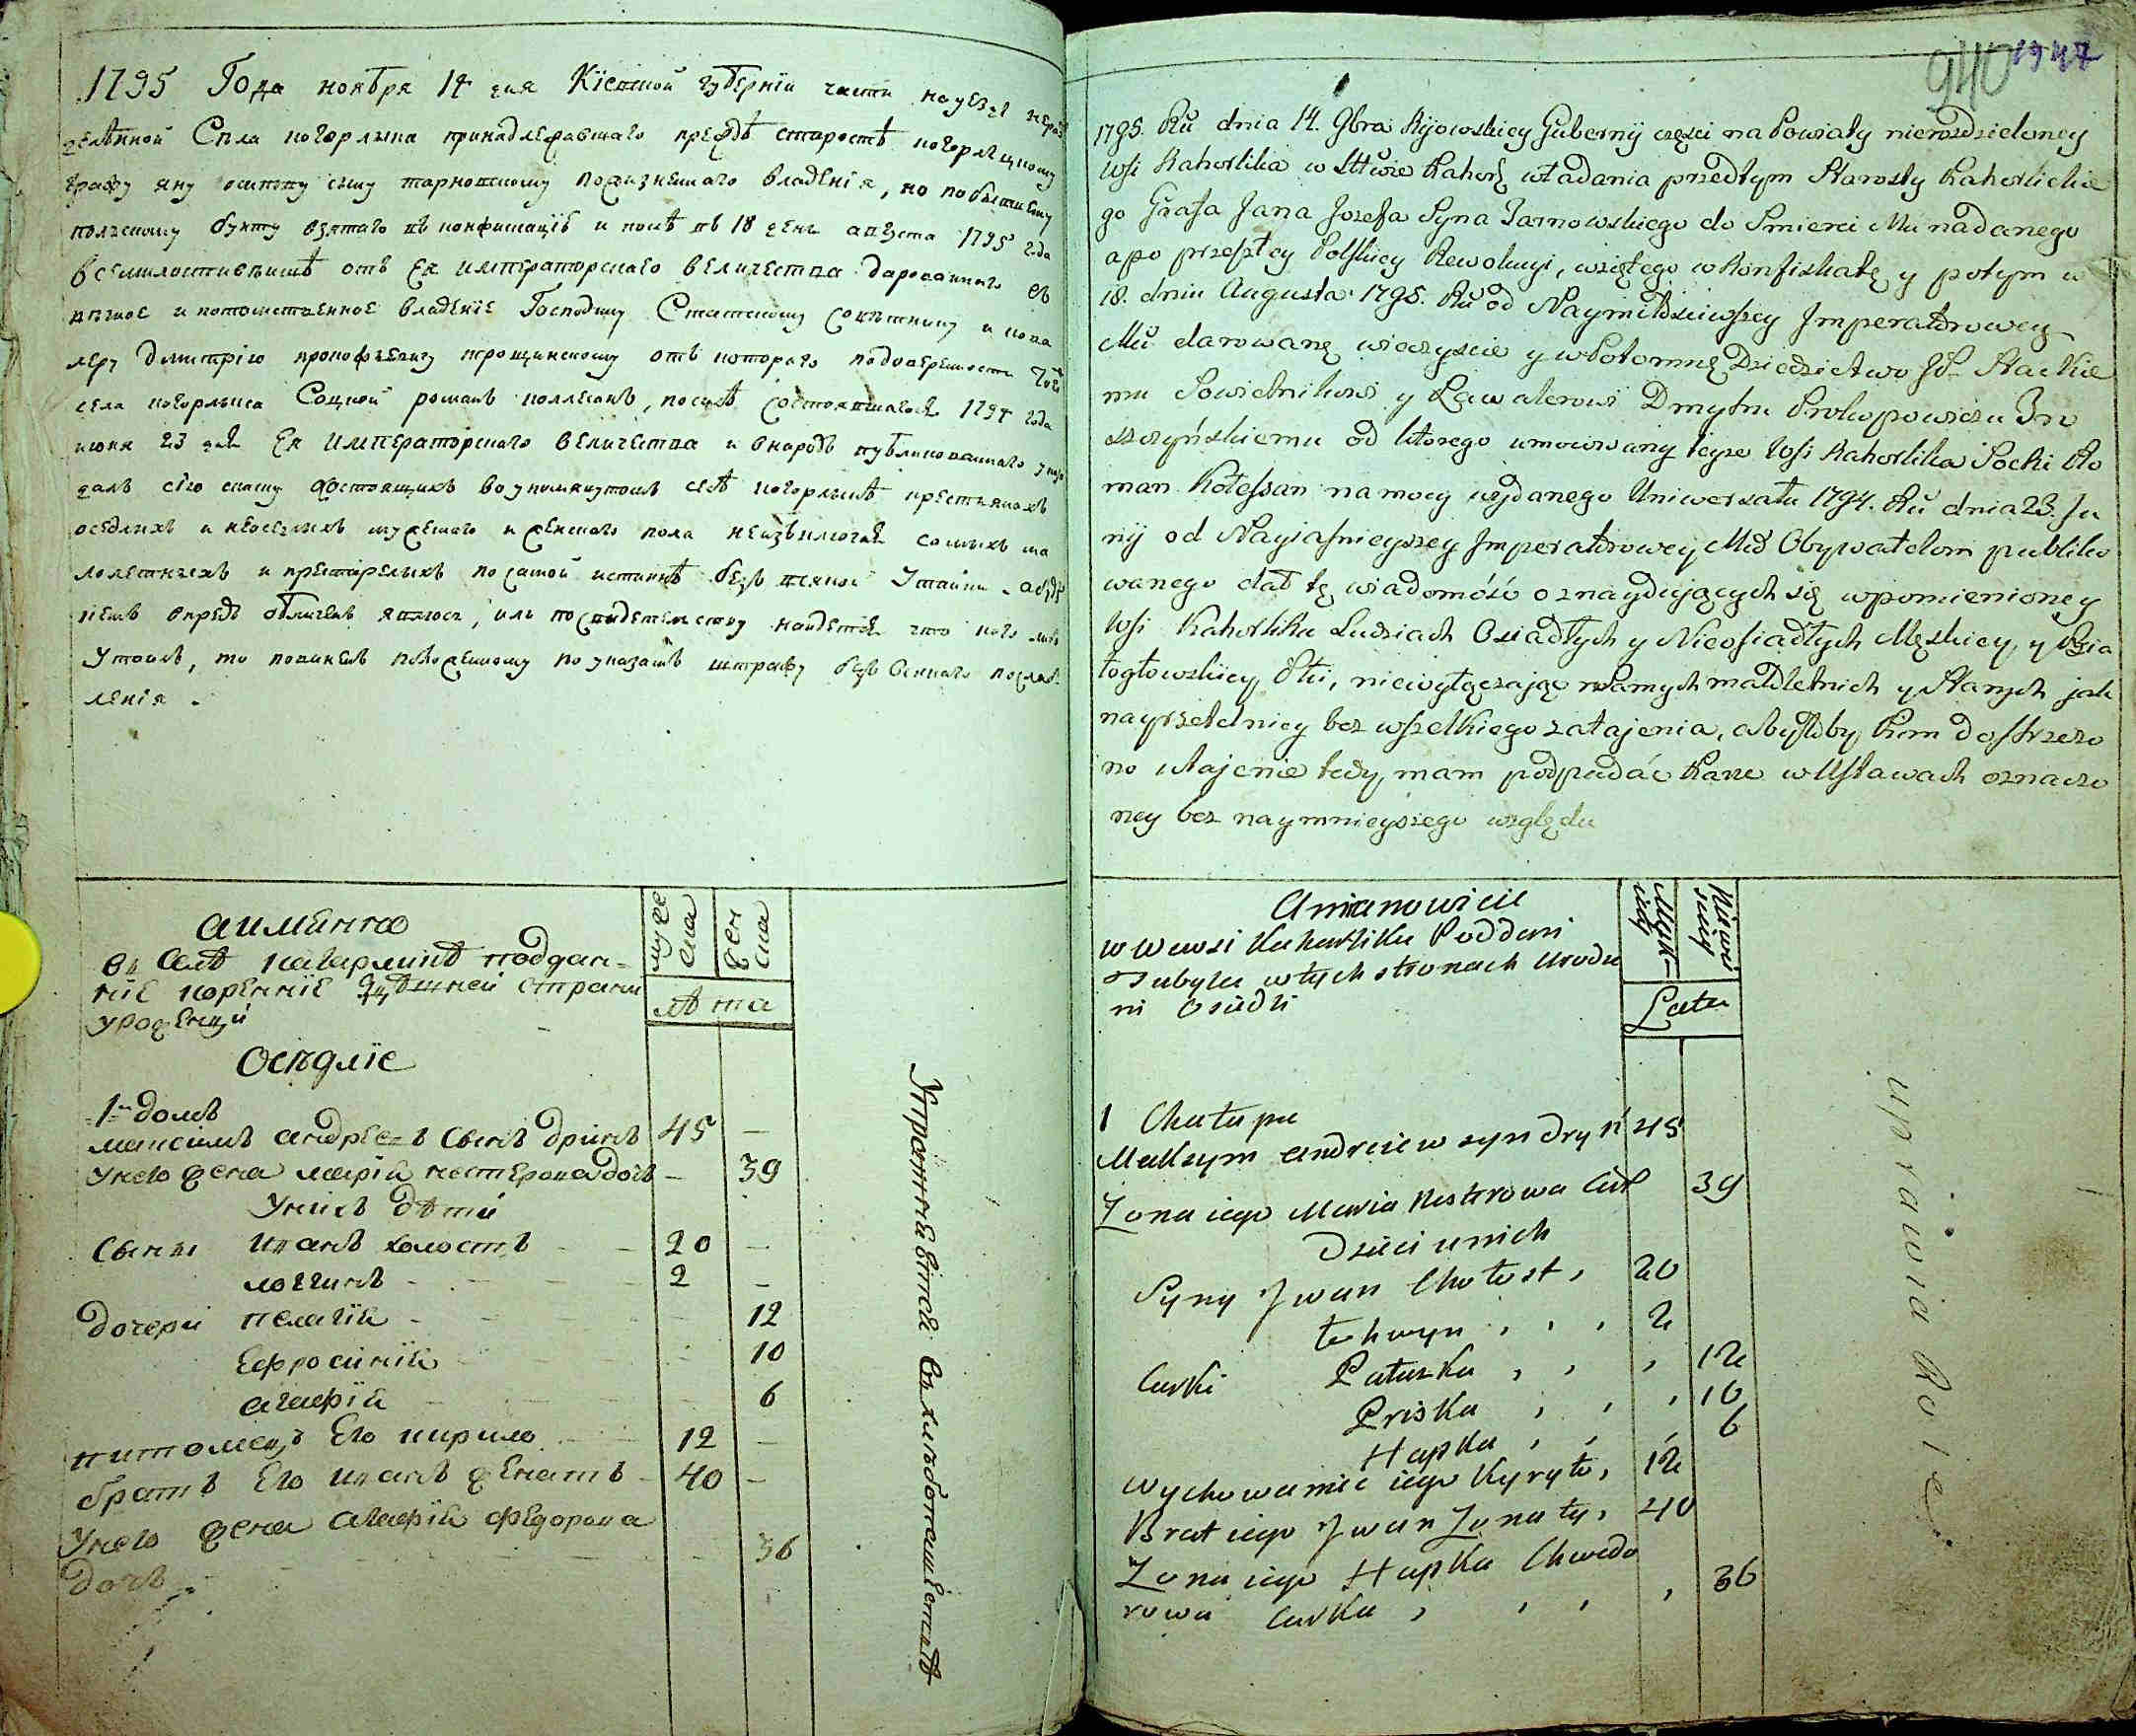 1795 Года ноября 14 дня Кіевской губерніи части на уезд нераз
деленной Села кагарлыка принадлежавшаго прежде старосте кагарлицкому
графу яну осипову сыну тарновскому пожизненаго владенія, но по бывшему
полскому бунту взятаго въ конфискацію и после въ 18 день августа 1795 года
всемилостивейше отъ Ея императорскаго величества дарованнаго въ
вечное и потомственное владеніе Господину Статскому советнику и кава
леру дмитрію прокофіевичу трощинскому отъ котораго подоверенности того
села кагорлыка Соцкой романъ коллесанъ, посиле состоявшагося 1794 года
июня 23 дня Ея императорскаго величества и внародъ публикованнаго указа
далъ сію скаску о состоящихъ во упомянутомъ селе кагорлыке крестьянахъ
оседлихъ и неоседлихъ мужескаго и женскаго пола неизключая самыхъ ма
лолетныхъ и престарелыхъ посамой истинне безъ всякой утайки. а буде
кемъ впредь обличенъ явлюсь, или посвидетелству найдется что кого либо
утаилъ, то повиненъ положенному по указамъ штрафу безъ всякаго послаб
ленія.
а имянно
въ Селе кагарлике поддан-
ніе коренніе здешней страни
уроженци
муже
ска
жен
ска
лета
Оседліе
1й домъ
максимъ андреевъ сынъ дринь 45 —
У него жена марія нестерова дочь — 39
У нихъ дети
Сыни иванъ холостъ 20 —
логгинъ 2 —
дочери пелагія 12
Ефросинія 10
агафія 6
питомецъ Его кирило 12 —
братъ Его иванъ женатъ 40 —
У него жена агафія федорова
дочь 36
Упражняется въ хлебопашестве
940 1947
1795. Ru dnia 14. 9bra Kijowskiey Gubernij części na Powiaty nierozdzieloney
Wsi Kahorlika w Sttwie Kahorl władania przedtym Starosty Kahorlickie
go Grafa Jana Jozefa Syna Tarnowskiego do Smierci Mu nadanego
a po przeszłey Polskiey Rewolucyi, wziętego w Konfiskatę y potym w
18. dniu Augusta 1795. Ru od Naymiłościwszey Imperatorowey
Mu darowanę wieczyscie y w Potomnę Dziedzictwo JP. Stackie
mu Sowietnikowi y Kawalerowi Dmytru Prokopowiczu Tro
szczyńskiemu od ktorego umocowany teyże Wsi Kahorlika Socki Ro
man Kolessan na mocy wydanego Uniwersału 1794. Ru dnia 23. Ju
nij od Nayiasnieyszey Imperatorowey Mci Obywatelom publiko
wanego dał tę wiadomość o znayduiących się w pomienioney
Wsi Kahorliku Ludziach Osiadłych y Nieosiadłych Męskiey, y Bia
łogłowskiey Płci, niewyłączaiąc samych małoletnich y starych jak
nayrzetelniey bez wszelkiego zatajenia, a byłoby kim dostrzezo
no utajenie tedy, mam podpadać karze w Ustawach oznaczo
ney bez naymnieyszego względu
A mianowicie
w wewsi Kaharliku Poddani
Tubylcy w tych stronach urodze
ni Osiedli
Męsk-
iey
Niewie
sciey
Lata
1 Chałupa
Maksym andreiew syn dryń 45
Zona iego Maria Nestrowa Cur 39
Dzieci u nich
Syny Jwan Chołost, 20
Łohwyn , , , 2
Curki Pałazka , , , 12
Priska , , , 10
Hapka , , , 6
Wychowaniec iego Kyryło, 12
Brat iego Jwan Zonaty, 40
Zona iego Hapka Chwedo
rowa Curka , , , , 36
uprawia Rolę.